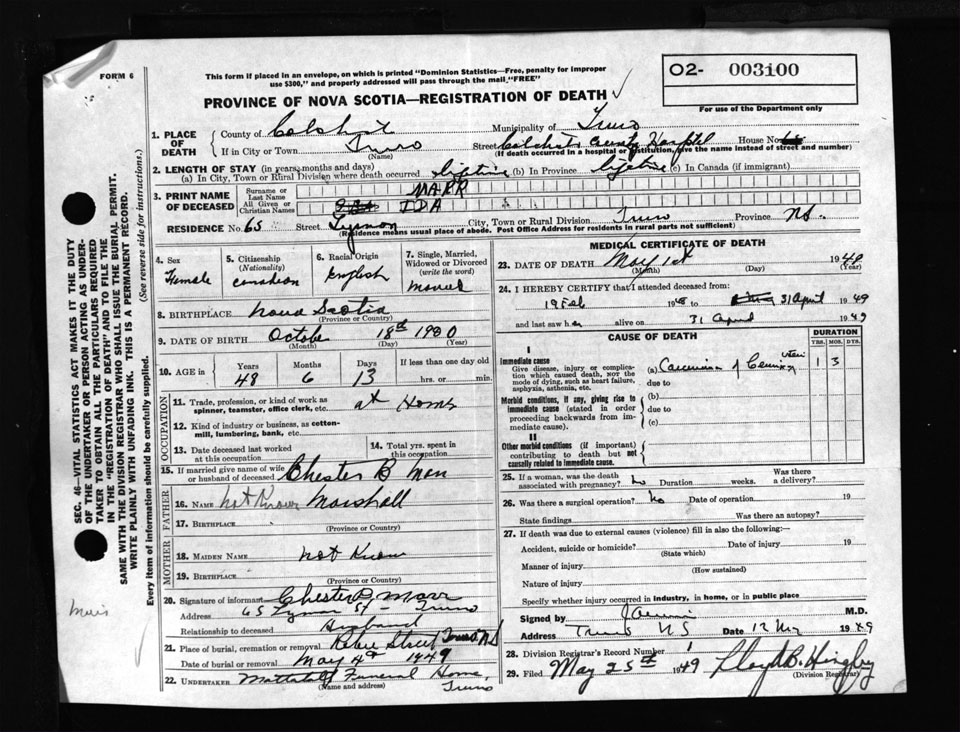 FORM 6
This form if placed in an envelope, on which is printed "Dominion Statistics—Free, penalty for improper
use $300," and properly addressed will pass through the mail "FREE"
O2- 003100
For use of the Department only
PROVINCE OF NOVA SCOTIA—REGISTRATION OF DEATH
1. PLACE OF DEATH
County of Colchest Municipality of Truro
If in City or Town Truro Street Colchester County Hospital House No.
(Name) (If death occurred in a hospital or institution, give the name instead of street and number)
2. LENGTH OF STAY (in years, months and days)
(a) In City, Town or Rural Division where death occurred lifetime (b) In Province lifetime (c) In Canada (if immigrant)
3. PRINT NAME OF DECEASED
Surname or Last Name MARR
All Given or Christian Names IDA
RESIDENCE No. 65 Street Lyman City, Town or Rural Division Truro Province NS.
(Residence means usual place of abode. Post Office Address for residents in rural parts not sufficient)
4. Sex Female
5. Citizenship (Nationality) Canadian
6. Racial Origin English
7. Single, Married, Widowed or Divorced (write the word) Married
8. BIRTHPLACE Nova Scotia
(Province or Country)
9. DATE OF BIRTH October 18th 1900
(Month) (Day) (Year)
10. AGE in Years 48 Months 6 Days 13 If less than one day old
hrs. or min.
OCCUPATION
11. Trade, profession, or kind of work as
spinner, teamster, office clerk, etc. at Home
12. Kind of industry or business, as cotton-
mill, lumbering, bank, etc.
13. Date deceased last worked
at this occupation
14. Total yrs. spent in
this occupation
15. If married give name of wife
or husband of deceased Chester B Marr
FATHER
16. Name not Known Marshall
17. Birthplace
(Province or Country)
MOTHER
18. Maiden Name not Known
19. Birthplace
(Province or Country)
20. Signature of informant Chester B. Marr
Address 65 Lyman St - Truro
Relationship to deceased Husband
21. Place of burial, cremation or removal Robie Street Truro NS
Date of burial or removal May 4th 1949
22. Undertaker Mattatall Funeral Home,
(Name and address) Truro
MEDICAL CERTIFICATE OF DEATH
23. DATE OF DEATH May 1st 1949
(Month) (Day) (Year)
24. I HEREBY CERTIFY that I attended deceased from:
19 Feb 1948 to 31 April 1949
and last saw her alive on 31 April 1949
CAUSE OF DEATH
DURATION
YRS. MOS. DYS.
I
Immediate cause
Give disease, injury or complica-
tion which caused death, not the
mode of dying, such as heart failure,
asphyxia, asthenia, etc.
(a) Carcinoma of Cervix uteri 1 3
due to
Morbid conditions, if any, giving rise to
immediate cause (stated in order
proceeding backwards from im-
mediate cause).
(b)
due to
(c)
II
Other morbid conditions (if important)
contributing to death but not
causally related to immediate cause.
25. If a woman, was the death
associated with pregnancy? no Duration weeks. Was there
a delivery?
26. Was there a surgical operation? No Date of operation 19
State findings Was there an autopsy?
27. If death was due to external causes (violence) fill in also the following:—
Accident, suicide or homicide? Date of injury 19
(State which)
Manner of injury
(How sustained)
Nature of injury
Specify whether injury occurred in industry, in home, or in public place
Signed by M.D.
Address Truro NS Date 12 May 1949
28. Division Registrar's Record Number
29. Filed May 25th 1949 Lloyd B. Hingley
(Division Registrar)
SEC. 46—VITAL STATISTICS ACT MAKES IT THE DUTY
OF THE UNDERTAKER OR PERSON ACTING AS UNDER-
TAKER TO OBTAIN ALL THE PARTICULARS REQUIRED
IN THE "REGISTRATION OF DEATH" AND TO FILE THE
SAME WITH THE DIVISION REGISTRAR WHO SHALL ISSUE THE BURIAL PERMIT.
WRITE PLAINLY WITH UNFADING INK. THIS IS A PERMANENT RECORD.
Every item of information should be carefully supplied. (See reverse side for instructions.)